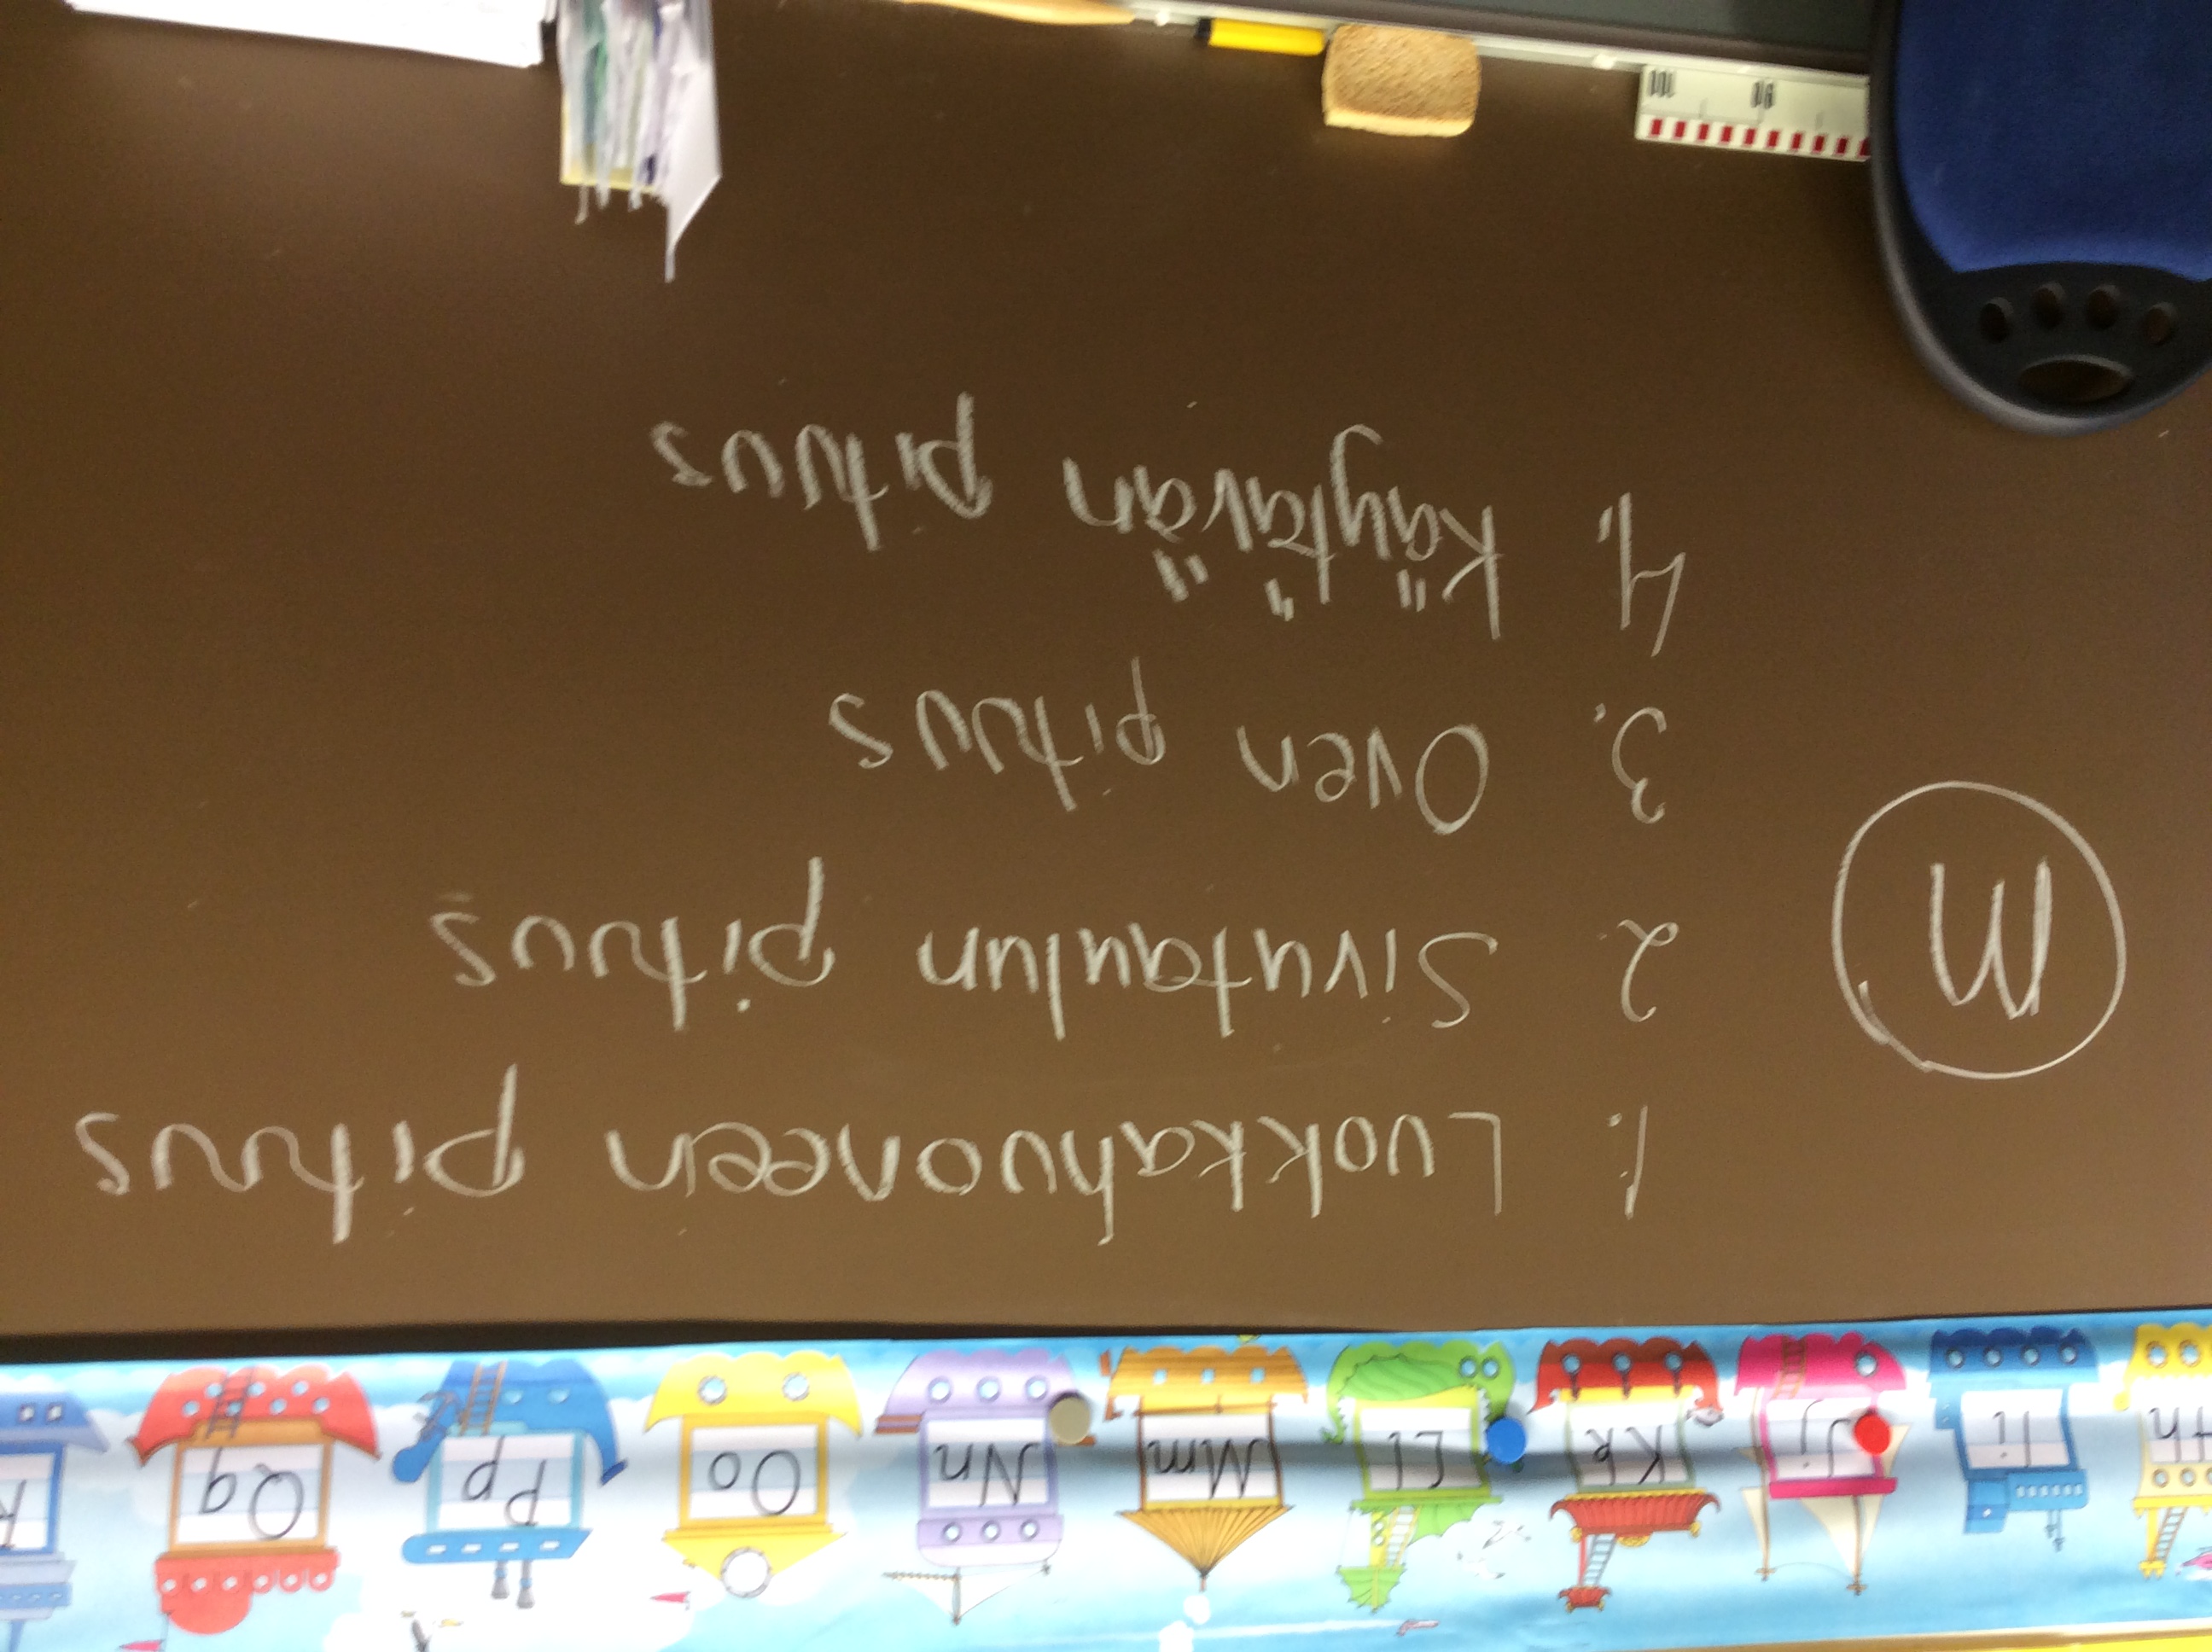 Ii Jj Kk Ll Mm Nn Oo Pp Qq
1. Luokkahuoneen pituus
M
2. Sivutaulun pituus
3. Oven pituus
4. Käytävän pituus